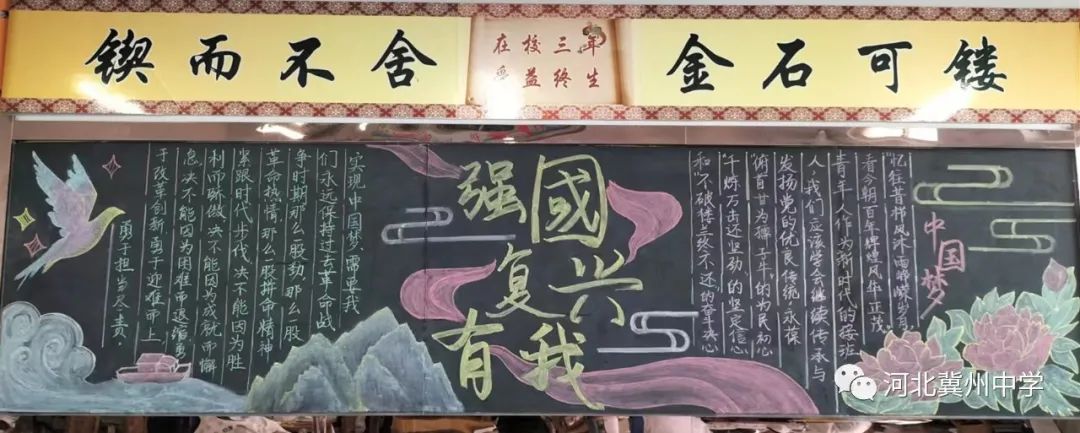 锲而不舍
在校三年
受益终生
金石可镂
中国梦
"忆往昔栉风沐雨峥嵘岁月,
看今朝百年辉煌风华正茂."
青年人作为新时代的接班
人,我们应该学会继续传承与
发扬党的优良传统,永葆
"俯首甘为孺子牛"的为民初心
"千炼万击还坚劲"的坚定信心
和"不破楼兰终不还"的决心
强國
复兴
有我
实现中国梦,需要我
们永远保持过去革命战
争时期那么一股劲,那么一股
革命热情,那么一股拼命精神
紧跟时代步伐,决不能因为胜
利而骄傲,决不能因为成就而懈
怠,决不能因为困难而退缩,勇
于改革创新,勇于迎难而上
勇于担当尽责.
河北冀州中学